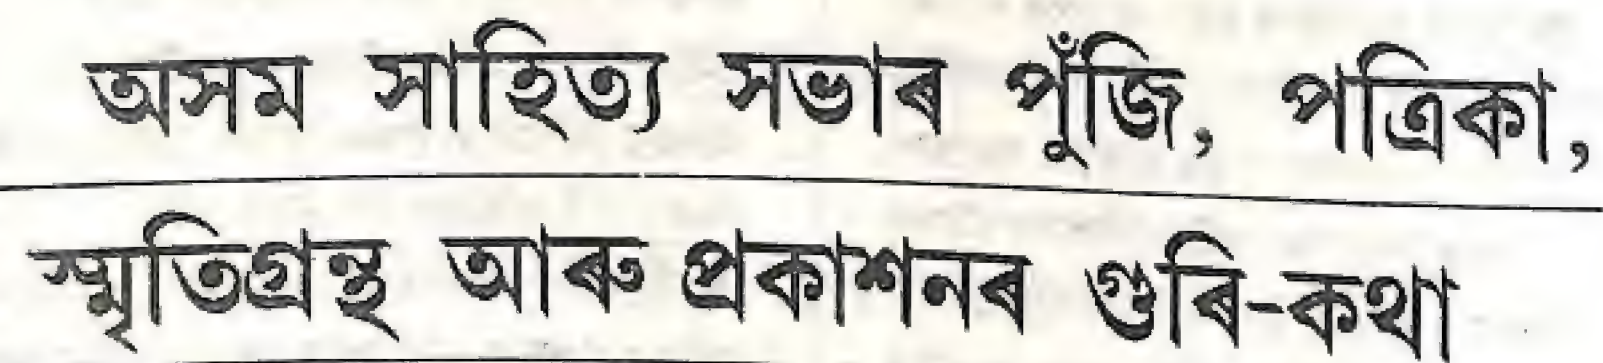 অসম সাহিত্য সভাৰ পুঁজি, পত্ৰিকা,
স্মৃতিগ্ৰন্থ আৰু প্ৰকাশনৰ গুৰি-কথা